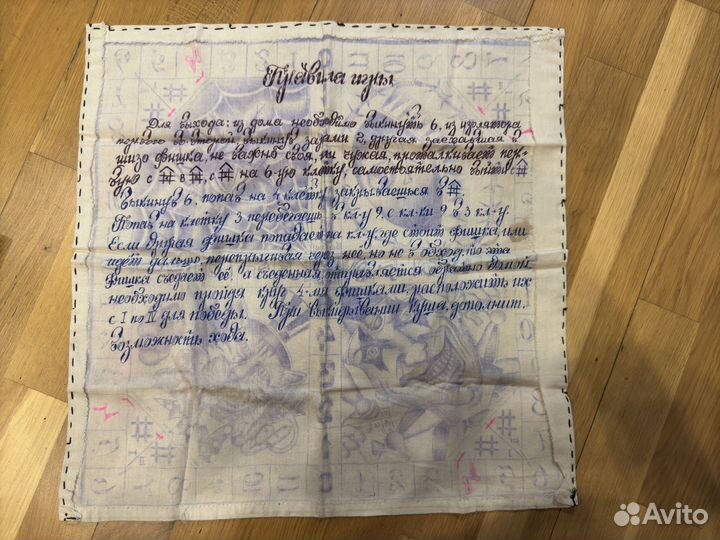 Правила игры
Для выхода: из дома необходимо выкинуть 6, из изолятора
первого во второй, выкинув разами 2, другая заехавшая в
шизо фишка, не важно своя, ли чужая, проталкивает пер-
вую с в, с на 6-ую клетку, самостоятельно выйти с
Выкинув 6, попав на 4 клетку, закрываешься в
Попав на клетку 3 перебегаешь в кл-у 9, с кл-ки 9 в 3 кл-у.
Если другая фишка попадает на кл-у, где стоит фишка, или
идет дальше, перепрыгивая через неё, но не в обход, то эта
фишка съедает её, а съеденная отправляется обратно домой
необходимо пройдя круг 4-мя фишками, расположить их
с I по IV для победы. При выкидывании куша, дополнит.
возможность хода.
Avito